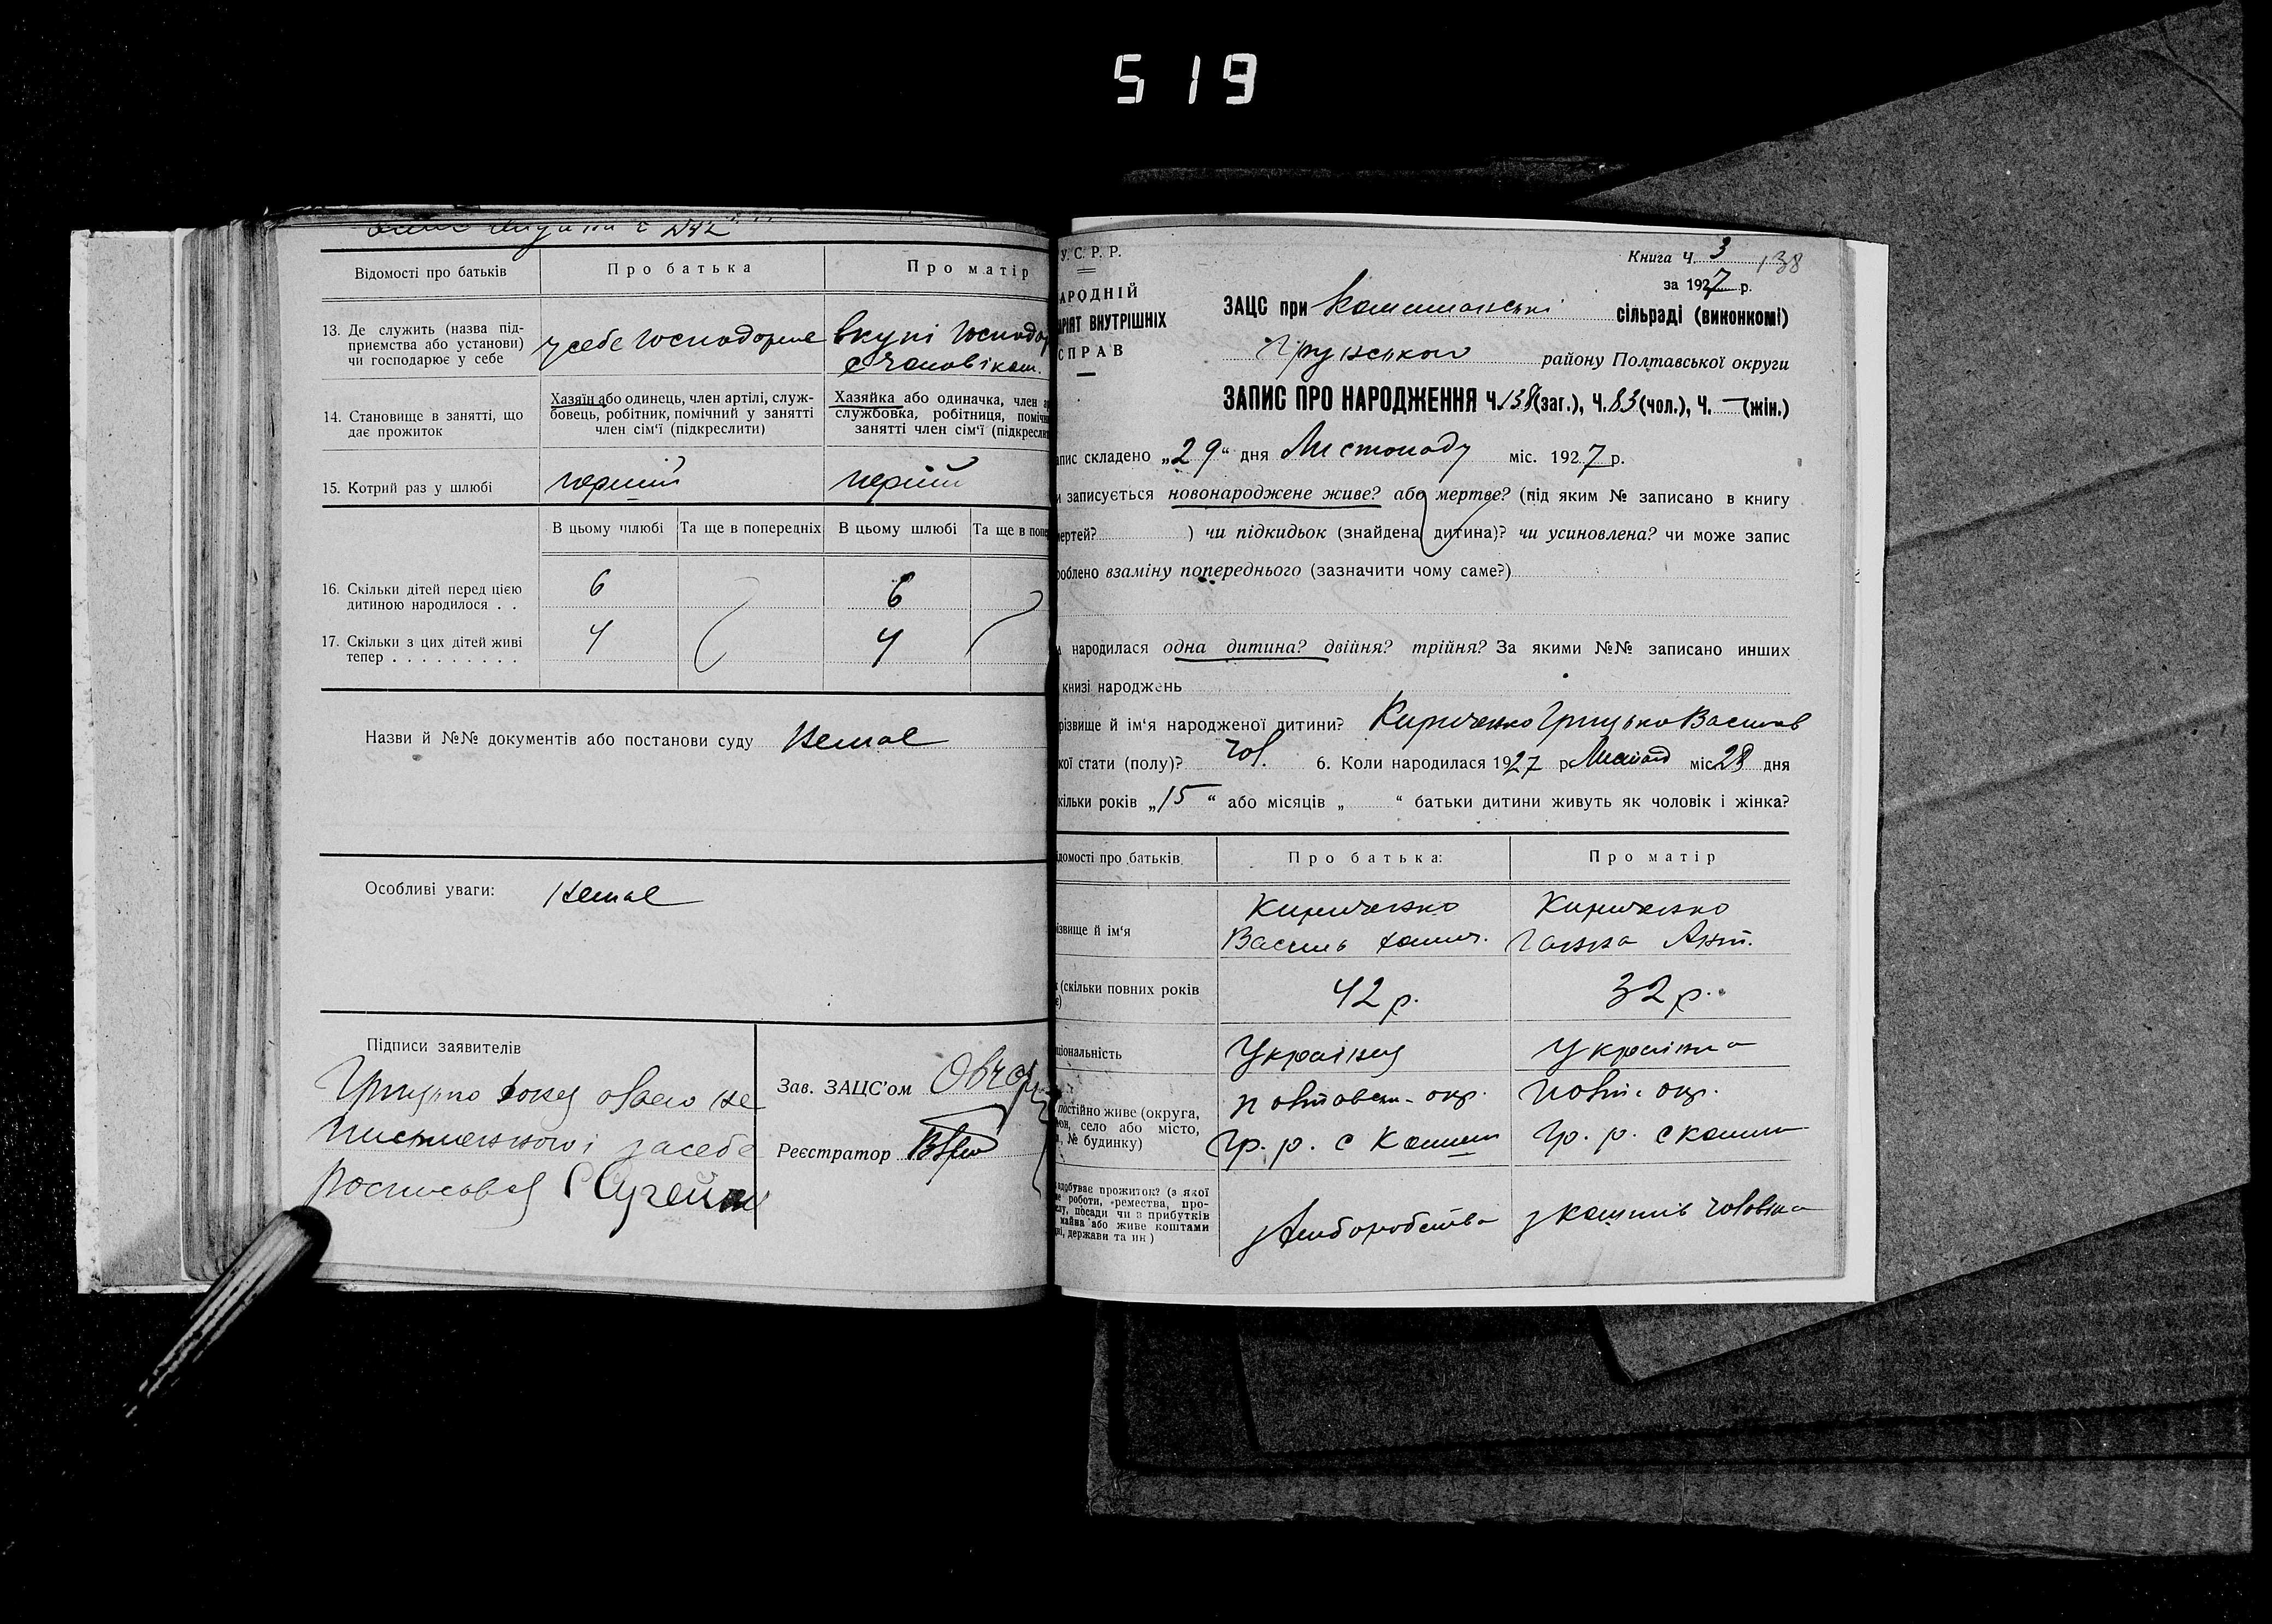 519
Відомості про батьків
Про батька
Про матір
13. Де служить (назва під-
приємства або установи)
чи господарює у себе
у себе господорює
вкупі господор
с чоловіком.
14. Становище в занятті, що
дає прожиток
Хазяїн або одинець, член артілі, служ-
бовець, робітник, помічний у занятті
член сім'ї (підкреслити)
Хазяйка або одиначка, член
службовка, робітниця, поміч
занятті член сім'ї (підкресли
15. Котрий раз у шлюбі
перший
перший
В цьому шлюбі
Та ще в попередніх
В цьому шлюбі
Та ще в попе
16. Скільки дітей перед цією
дитиною народилося . .
6
6
17. Скільки з цих дітей живі
тепер . . . . . . . . .
4
4
Назви й №№ документів або постанови суду
Немає
Особливі уваги:
Немає
Підписи заявителів
Зав. ЗАЦС'ом
Реєстратор
У.С.Р.Р.
АРОДНІЙ
АРІЯТ ВНУТРІШНІХ
СПРАВ
Книга Ч. 3
138
за 1927 р.
ЗАЦС при
сільраді (виконкомі)
Грунського району Полтавської округи
ЗАПИС ПРО НАРОДЖЕННЯ Ч. 138 (заг.), Ч. 83 (чол.), Ч. — (жін.)
апис складено „29“ дня Листопаду міс. 1927 р.
и записується новонароджене живе? або мертве? (під яким № записано в книгу
мертей? ) чи підкидьок (знайдена дитина)? чи усиновлена? чи може запис
роблено взаміну попереднього (зазначити чому саме?)
народилася одна дитина? двійня? трійня? За якими №№ записано инших
книзі народжень
різвище й ім'я народженої дитини? Кириченко Грицько Васильов
кої стати (полу)? чол. 6. Коли народилася 1927 р. міс 28 дня
кільки років „15“ або місяців „ “ батьки дитини живуть як чоловік і жінка?
домості про батьків
Про батька:
Про матір
ізвище й ім'я
Кириченко
Василь
Кириченко
Ганна Ант.
(скільки повних років
42 р.
32 р.
ціональність
Українец
Українка
постійно живе (округа,
он, село або місто,
, № будинку)
Полтавськ. окр.
Гр. р. с
Полт. окр.
Гр. р. с
адобуває прожиток? (з якої
е роботи, ремества, про-
слу, посади чи з прибутків
майна або живе коштами
ні, держави та ин)
з хліборобства
з коштів чоловіка